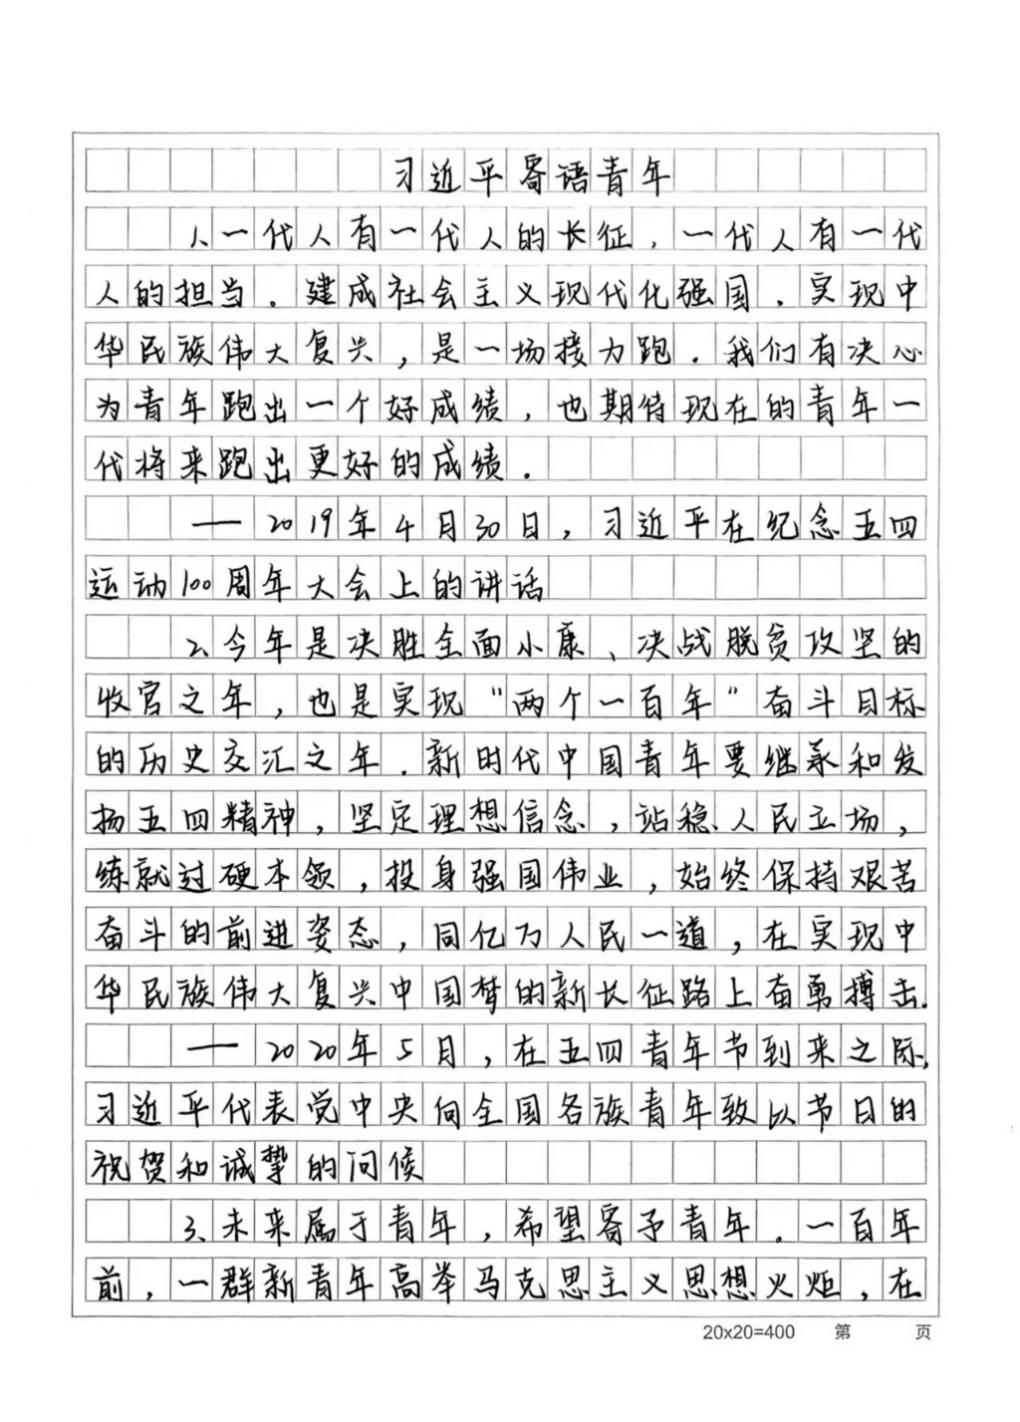 习近平寄语青年
1、一代人有一代人的长征，一代人有一代
人的担当。建成社会主义现代化强国，实现中
华民族伟大复兴，是一场接力跑。我们有决心
为青年跑出一个好成绩，也期待现在的青年一
代将来跑出更好的成绩。
——2019年4月30日，习近平在纪念五四
运动100周年大会上的讲话
2、今年是决胜全面小康、决战脱贫攻坚的
收官之年，也是实现“两个一百年”奋斗目标
的历史交汇之年。新时代中国青年要继承和发
扬五四精神，坚定理想信念，站稳人民立场，
练就过硬本领，投身强国伟业，始终保持艰苦
奋斗的前进姿态，同亿万人民一道，在实现中
华民族伟大复兴中国梦的新长征路上奋勇搏击。
——2020年5月，在五四青年节到来之际，
习近平代表党中央向全国各族青年致以节日的
祝贺和诚挚的问候
3、未来属于青年，希望寄予青年。一百年
前，一群新青年高举马克思主义思想火炬，在
20x20=400 第 页